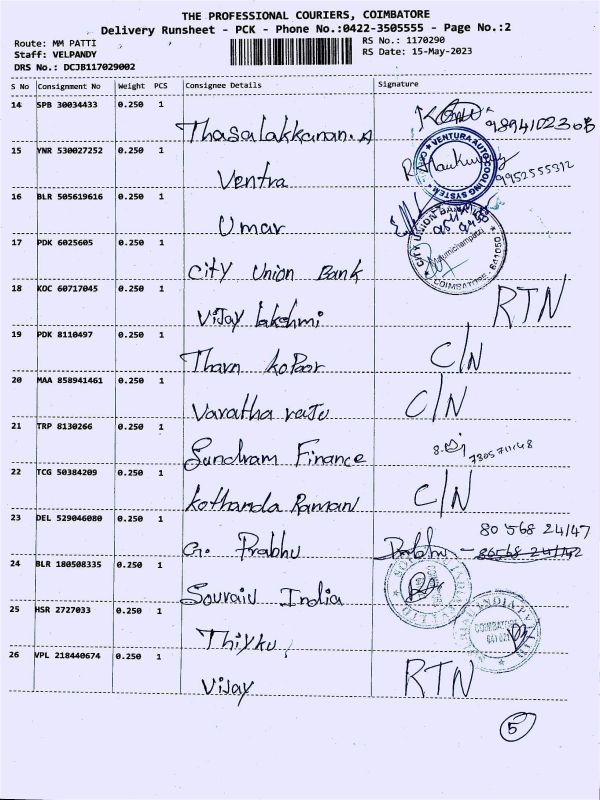 THE PROFESSIONAL COURIERS, COIMBATORE
Delivery Runsheet - PCK - Phone No.:0422-3505555 - Page No.:2
Route: MM PATTI
RS No.: 1170290
Staff: VELPANDY
RS Date: 15-May-2023
DRS No.: DCJB117029002
S No Consignment No Weight PCS Consignee Details Signature
14 SPB 30034433 0.250 1
Thasalakkanan. A 9894102306
15 YNR 530027252 0.250 1
Ventra VENTURA AUTO COOLING SYSTEM 9952555312
16 BLR 505619616 0.250 1
Umar
17 PDK 6025605 0.250 1
City Union Bank CITY UNION BANK COIMBATORE 641050
18 KOC 60717045 0.250 1
Vijay lakshmi RTN
19 PDK 8110497 0.250 1
Tharn kopoor C/N
20 MAA 858941461 0.250 1
Varatha raju C/N
21 TRP 8130266 0.250 1
Sundram Finance 7305711148
22 TCG 50384209 0.250 1
kothanda Raman C/N
23 DEL 529046080 0.250 1
80 568 24147
G. Prabhu Prabhu
24 BLR 180508335 0.250 1
Souraiv India
25 HSR 2727033 0.250 1
Thiyku COIMBATORE
26 VPL 218440674 0.250 1
Vijay RTN
5